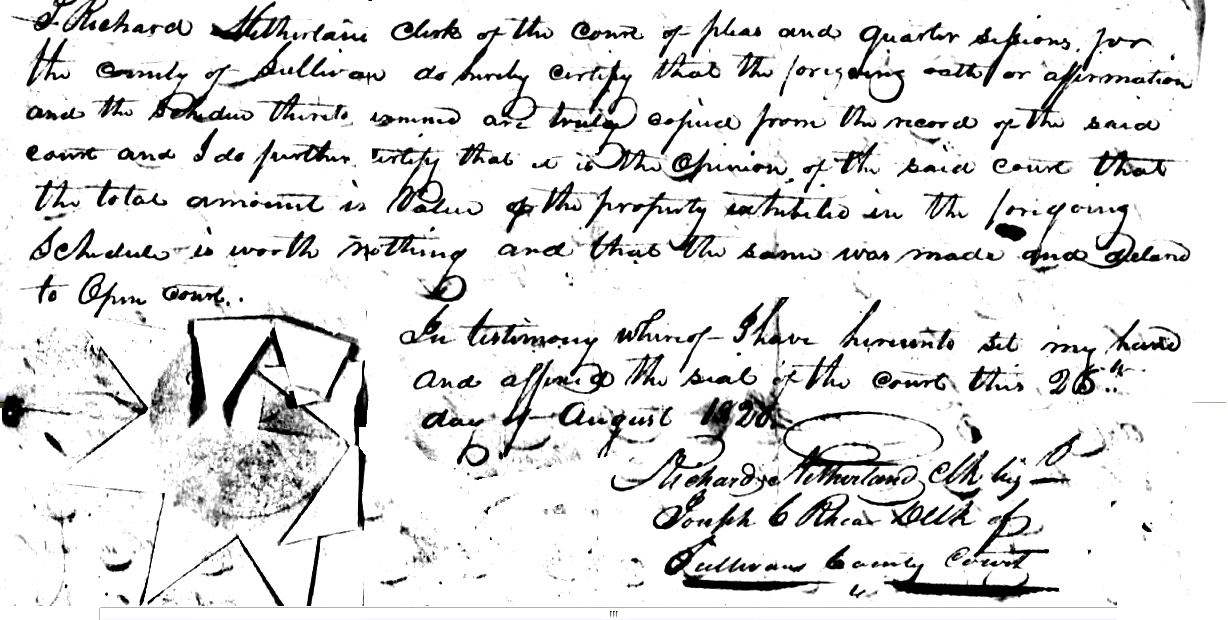 I Richard Netherland Clerk of the Court of pleas and quarter sessions for
the county of Sullivan do hereby certify that the foregoing oath or affirmation
and the Schedule thereto annexed are truly copied from the record of the said
court and I do further certify that it is the Opinion of the said court that
the total amount in Value of the property exhibited in the foregoing
Schedule is worth nothing and that the same was made and
to Open Court.
In testimony whereof I have hereunto set my hand
and affixed the seal of the court this 26th
day of August
Richard Netherland Clk by
Joseph C Rhea DClk of
Sullivan County Court